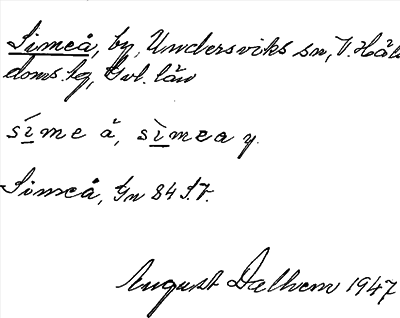 Simeå, by, Undersviks sn, V. Häl-
doms.lg, Gvl. län
sìme å, sìmea y.
Simeå, Gn 84 S.V.
August Dalhem 1947